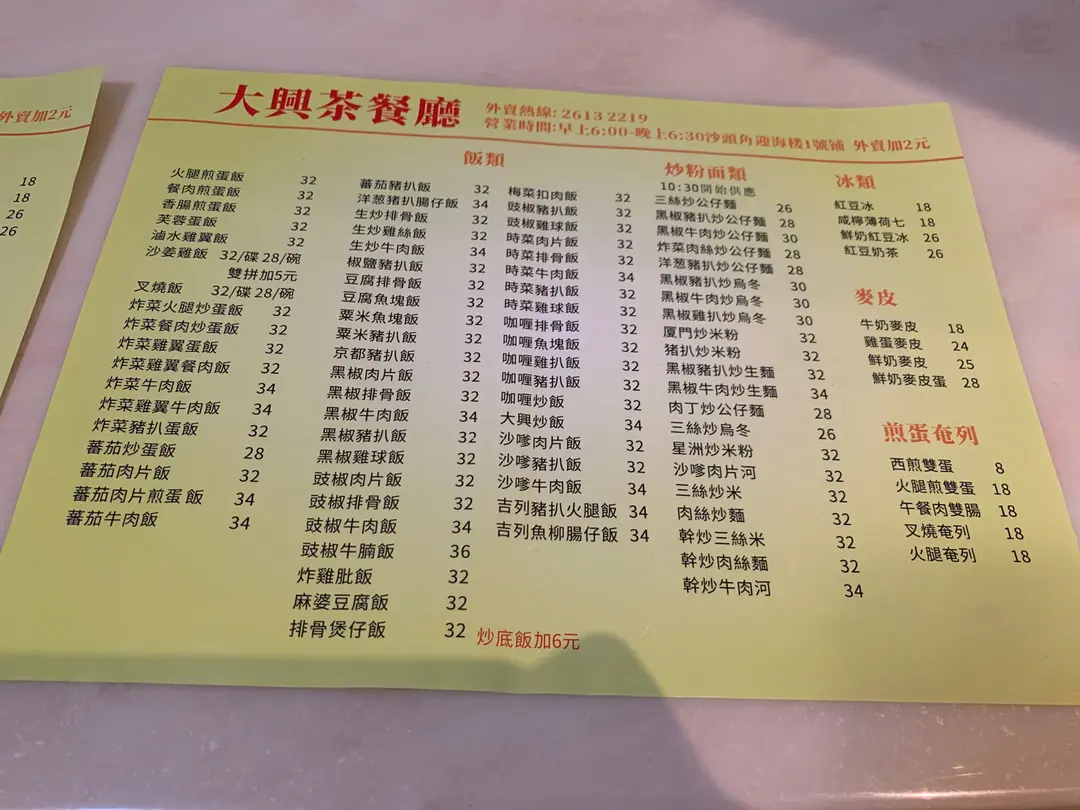 外賣加2元
18
18
26
26
大興茶餐廳
外賣熱線: 2613 2219
營業時間:早上6:00-晚上6:30沙頭角迎海楼1號铺 外賣加2元
飯類
火腿煎蛋飯 32
餐肉煎蛋飯 32
香腸煎蛋飯 32
芙蓉蛋飯 32
滷水雞翼飯 32
沙姜雞飯 32/碟 28/碗
雙拼加5元
叉燒飯 32/碟 28/碗
炸菜火腿炒蛋飯 32
炸菜餐肉炒蛋飯 32
炸菜雞翼蛋飯 32
炸菜雞翼餐肉飯 32
炸菜牛肉飯 34
炸菜雞翼牛肉飯 34
炸菜豬扒蛋飯 32
蕃茄炒蛋飯 28
蕃茄肉片飯 32
蕃茄肉片煎蛋飯 34
蕃茄牛肉飯 34
蕃茄豬扒飯 32
洋葱豬扒腸仔飯 34
生炒排骨飯 32
生炒雞絲飯 32
生炒牛肉飯 34
椒鹽豬扒飯 32
豆腐排骨飯 32
豆腐魚塊飯 32
粟米魚塊飯 32
粟米豬扒飯 32
京都豬扒飯 32
黑椒肉片飯 32
黑椒排骨飯 32
黑椒牛肉飯 34
黑椒豬扒飯 32
黑椒雞球飯 32
豉椒肉片飯 32
豉椒排骨飯 32
豉椒牛肉飯 34
豉椒牛腩飯 36
炸雞肶飯 32
麻婆豆腐飯 32
排骨煲仔飯 32
梅菜扣肉飯 32
豉椒豬扒飯 32
豉椒雞球飯 32
時菜肉片飯 32
時菜排骨飯 32
時菜牛肉飯 34
時菜豬扒飯 32
時菜雞球飯 32
咖喱排骨飯 32
咖喱魚塊飯 32
咖喱雞扒飯 32
咖喱豬扒飯 32
咖喱炒飯 32
大興炒飯 34
沙嗲肉片飯 32
沙嗲豬扒飯 32
沙嗲牛肉飯 34
吉列豬扒火腿飯 34
吉列魚柳腸仔飯 34
炒底飯加6元
炒粉面類
10:30開始供應
三絲炒公仔麵 26
黑椒豬扒炒公仔麵 28
黑椒牛肉炒公仔麵 30
炸菜肉絲炒公仔麵 28
洋葱豬扒炒公仔麵 28
黑椒豬扒炒烏冬 30
黑椒牛肉炒烏冬 30
黑椒雞扒炒烏冬 30
厦門炒米粉 32
豬扒炒米粉 32
黑椒豬扒炒生麵 32
黑椒牛肉炒生麵 34
肉丁炒公仔麵 28
三絲炒烏冬 26
星洲炒米粉 32
沙嗲肉片河 32
三絲炒米 32
肉絲炒麵 32
幹炒三絲米 32
幹炒肉絲麵 32
幹炒牛肉河 34
冰類
紅豆冰 18
咸檸薄荷七 18
鮮奶紅豆冰 26
紅豆奶茶 26
麥皮
牛奶麥皮 18
雞蛋麥皮 24
鮮奶麥皮 25
鮮奶麥皮蛋 28
煎蛋奄列
西煎雙蛋 8
火腿煎雙蛋 18
午餐肉雙腸 18
叉燒奄列 18
火腿奄列 18